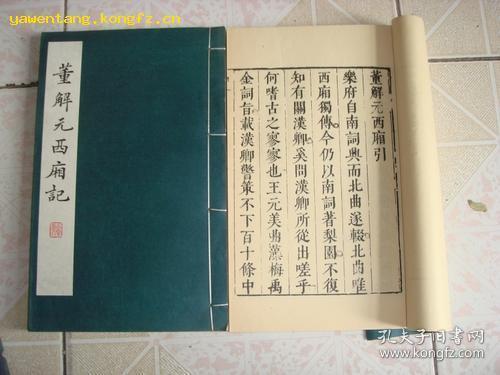 yawentang.kongfz.cn
董解元西廂記
董解元西廂引
樂府自南詞興而北曲遂輟北曲唯
西廂獨傳今仍以南詞著梨園不復
知有關漢卿奚問漢卿所從出嗟乎
何嗜古之寥寥也王元美曲藻梅禹
金詞旨載漢卿警策不下百十條中
孔夫子旧书网
www.kongfz.com